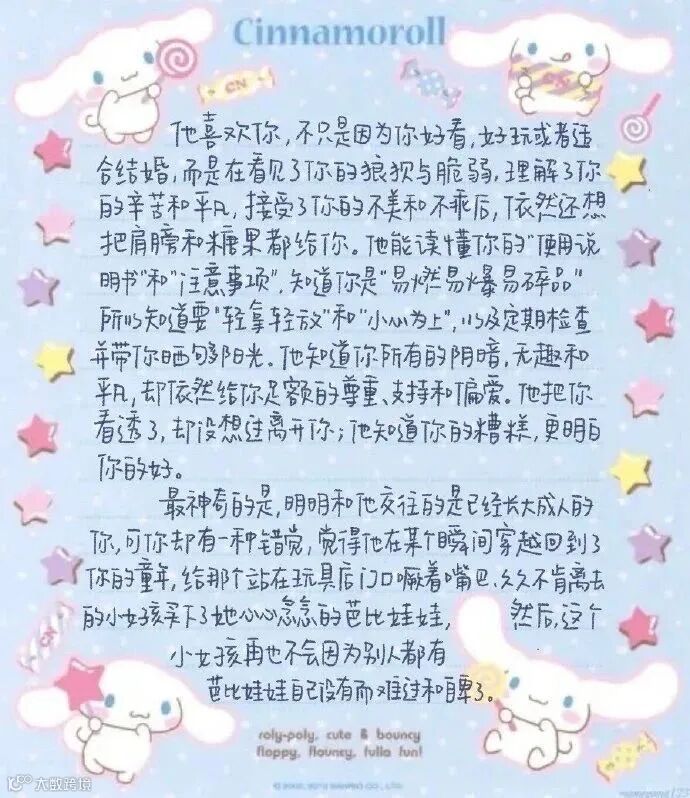 Cinnamoroll
CN
他喜欢你，不只是因为你好看，好玩或者适
合结婚，而是在看见了你的狼狈与脆弱，理解了你
的辛苦和平凡，接受了你的不美和不乖后，依然还想
把肩膀和糖果都给你。他能读懂你的“使用说
明书”和“注意事项”，知道你是“易燃易爆易碎品”
所以知道要“轻拿轻放”和“小心为上”，以及定期检查
并带你晒够阳光。他知道你所有的阴暗，无趣和
平凡，却依然给你足额的尊重、支持和偏爱。他把你
看透了，却没想过离开你；他知道你的糟糕，更明白
你的好。
最神奇的是，明明和他交往的是已经长大成人的
你，可你却有一种错觉，觉得他在某个瞬间穿越回到了
你的童年，给那个站在玩具店门口噘着嘴巴、久久不肯离去
的小女孩买下了她心心念念的芭比娃娃，然后，这个
小女孩再也不会因为别人都有
芭比娃娃自己没有而难过和自卑了。
CN
roly-poly, cute & bouncy
floppy, flouncy, fulla fun!
大数跨境